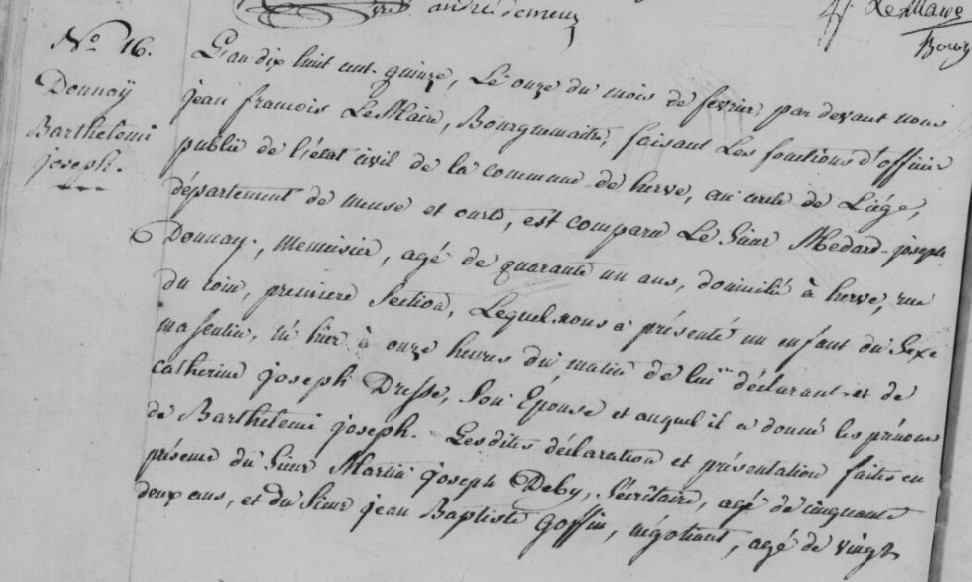 andré demeuz
LeMaire
Bourg
No. 16.
Donnaÿ
Barthelemi
joseph.
L'an dix huit cent-quinze, Le onze du mois de fevrier, par devant nous
jean francois LeMaire, Bourguemaitre, faisant Les fonctions d'officier
public de l'état civil de la commune de herve, canton de Liége,
département de meuse et ourte, est comparu Le Sieur Medard-joseph
Donnay, menuisier, agé de quarante un ans, domicilié à herve, rue
du coin, premiere Section, Lequel nous a présenté un enfant du Sexe
masculin, né hier à onze heures du matin de lui déclarant et de
catherine joseph Dresse, Son Épouse et auquel il a donné les prénoms
de Barthelemi joseph. Lesdites déclaration et présentation faites en
présence du Sieur Martin joseph Deby, Sécrétaire, agé de cinquante
deux ans, et du Sieur jean Baptiste Goffin, négotiant, agé de vingt